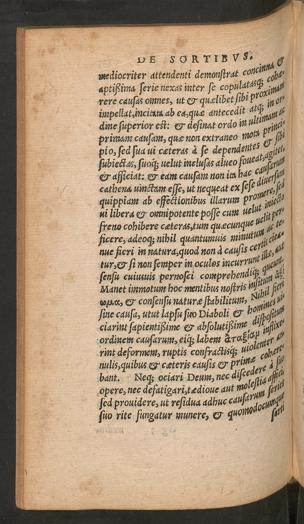 DE SORTIBVS.
mediocriter attendenti demonstrat concinna &
aptißima serie nexas inter se copulatasq; cohæ-
rere causas omnes, ut & quælibet sibi proximam
impellat, incitata ab ea, quæ antecedit atq; in or-
dine superior est: & desinat ordo in ultimam ac
primam causam, quæ non extraneo mota princi-
pio, sed sua ui cæteras à se dependentes & sibi
subiectas, suoq; uelut inclusas alueo foueat, agitet
& afficiat: & eam causam non in hac causarum
cathena uinctam esse, ut nequeat ex sese diuersum
quippiam ab effectionibus illarum promere, sed
ui libera & omnipotente posse cum uelut iniecto
freno cohibere cæteras, tum quæcunque uelit per-
ficere, adeoq; nihil quantumuis minutum ac te-
nue fieri in natura, quod non à causis certis
tur, & si non semper in oculos incurrunt illæ, aut
sensu cuiusuis pernosci comprehendiq;
Manet immotum hoc mentibus nostris insitum
& consensu naturæ stabilitum, Nihil fieri
sine causa, utut lapsu suo Diaboli & homines
ciarint sapientißime & absolutißime dispositum
ordinem causarum, eiq; labem ἀταξίας
rint deformem, ruptis confractisq; uiolenter
nulis, quibus & cæteris causis & primæ cohære-
bant. Neq; ociari Deum, nec discedere à suo
opere, nec defatigari, tædioue aut molestia affici:
sed prouidere, ut residua adhuc causarum series
suo rite fungatur munere, & quomodocunque